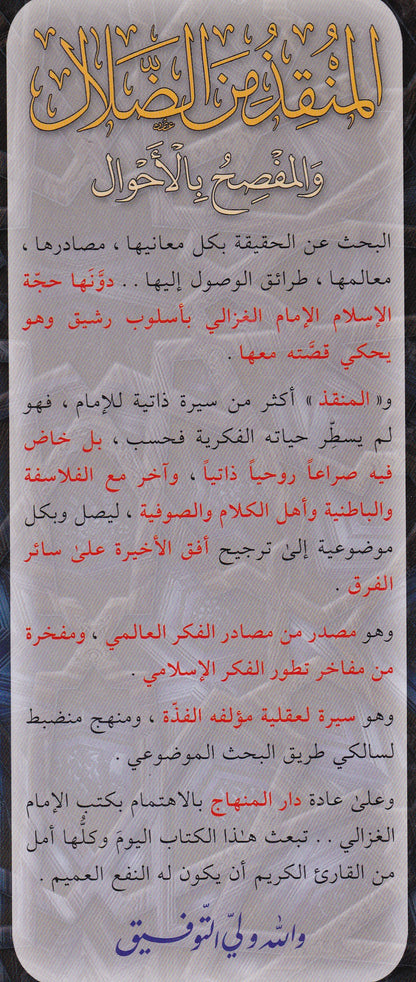 المُنْقِذُ مِنَ الضَّلَالِ
وَالمُفْصِحُ بِالْأَحْوَالِ
البحث عن الحقيقة بكل معانيها ، مصادرها ،
معالمها ، طرائق الوصول إليها . . دوَّنَها حجّة
الإسلام الإمام الغزالي بأسلوب رشيق وهو
يحكي قصَّته معها .
و« المنقذ » أكثر من سيرة ذاتية للإمام ، فهو
لم يسطِّر حياته الفكرية فحسب ، بل خاض
فيه صراعاً روحياً ذاتياً ، وآخر مع الفلاسفة
والباطنية وأهل الكلام والصوفية ، ليصل وبكل
موضوعية إلىٰ ترجيح أفق الأخيرة علىٰ سائر
الفرق .
وهو مصدر من مصادر الفكر العالمي ، ومفخرة
من مفاخر تطور الفكر الإسلامي .
وهو سيرة لعقلية مؤلفه الفذّة ، ومنهج منضبط
لسالكي طريق البحث الموضوعي .
وعلىٰ عادة دار المنهاج بالاهتمام بكتب الإمام
الغزالي . . تبعث هـٰذا الكتاب اليومَ وكلُّها أمل
من القارئ الكريم أن يكون له النفع العميم .
والله وليّ التّوفيق